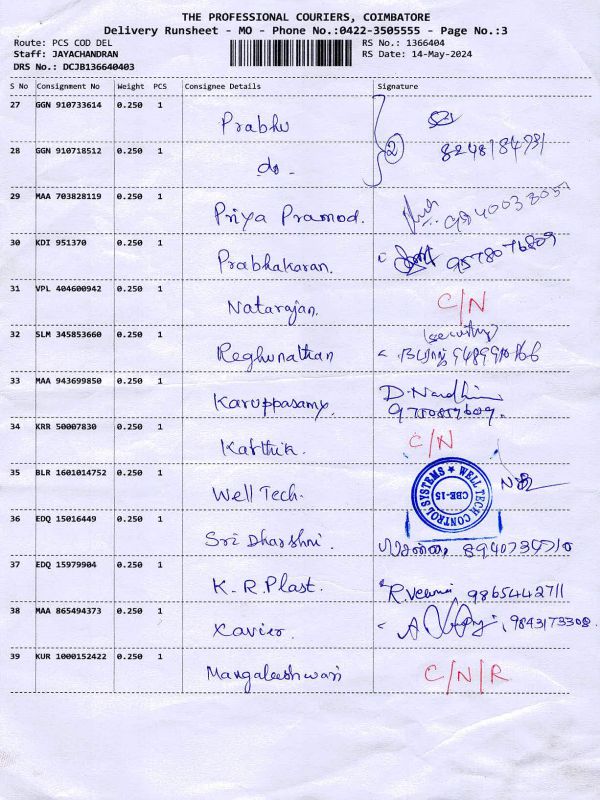 THE PROFESSIONAL COURIERS, COIMBATORE
Delivery Runsheet - MO - Phone No.:0422-3505555 - Page No.:3
Route: PCS COD DEL RS No.: 1366404
Staff: JAYACHANDRAN RS Date: 14-May-2024
DRS No.: DCJB136640403
S No Consignment No Weight PCS Consignee Details Signature
27 GGN 910733614 0.250 1 Prabhu
28 GGN 910718512 0.250 1 do - 2
29 MAA 703828119 0.250 1 Priya Pramod.
30 KDI 951370 0.250 1 Prabhakaran. 9578076809
31 VPL 404600942 0.250 1 Natarajan. C/N
(security)
32 SLM 345853660 0.250 1 Reghunathan
33 MAA 943699850 0.250 1 Karuppasamy D. Nandhini
34 KRR 50007830 0.250 1 Karthik. C/N
35 BLR 1601014752 0.250 1 Well Tech.
WELL TECH CONTROL SYSTEMS ★
CBE-15
36 EDQ 15016449 0.250 1 Sri Dharshni. 8940734710
37 EDQ 15979904 0.250 1 K.R.Plast. 9865442711
38 MAA 865494373 0.250 1 Xavier. 9843173308
39 KUR 1000152422 0.250 1 Mangaleeshwari C/N/R